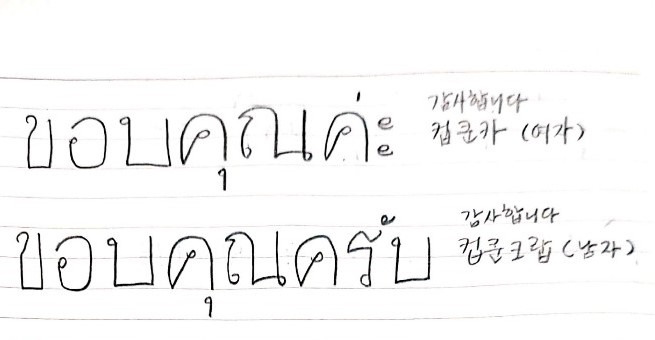 ขอบคุณค่ะ 감사합니다
컵쿤카 (여자)
ขอบคุณครับ 감사합니다
컵쿤크랍 (남자)